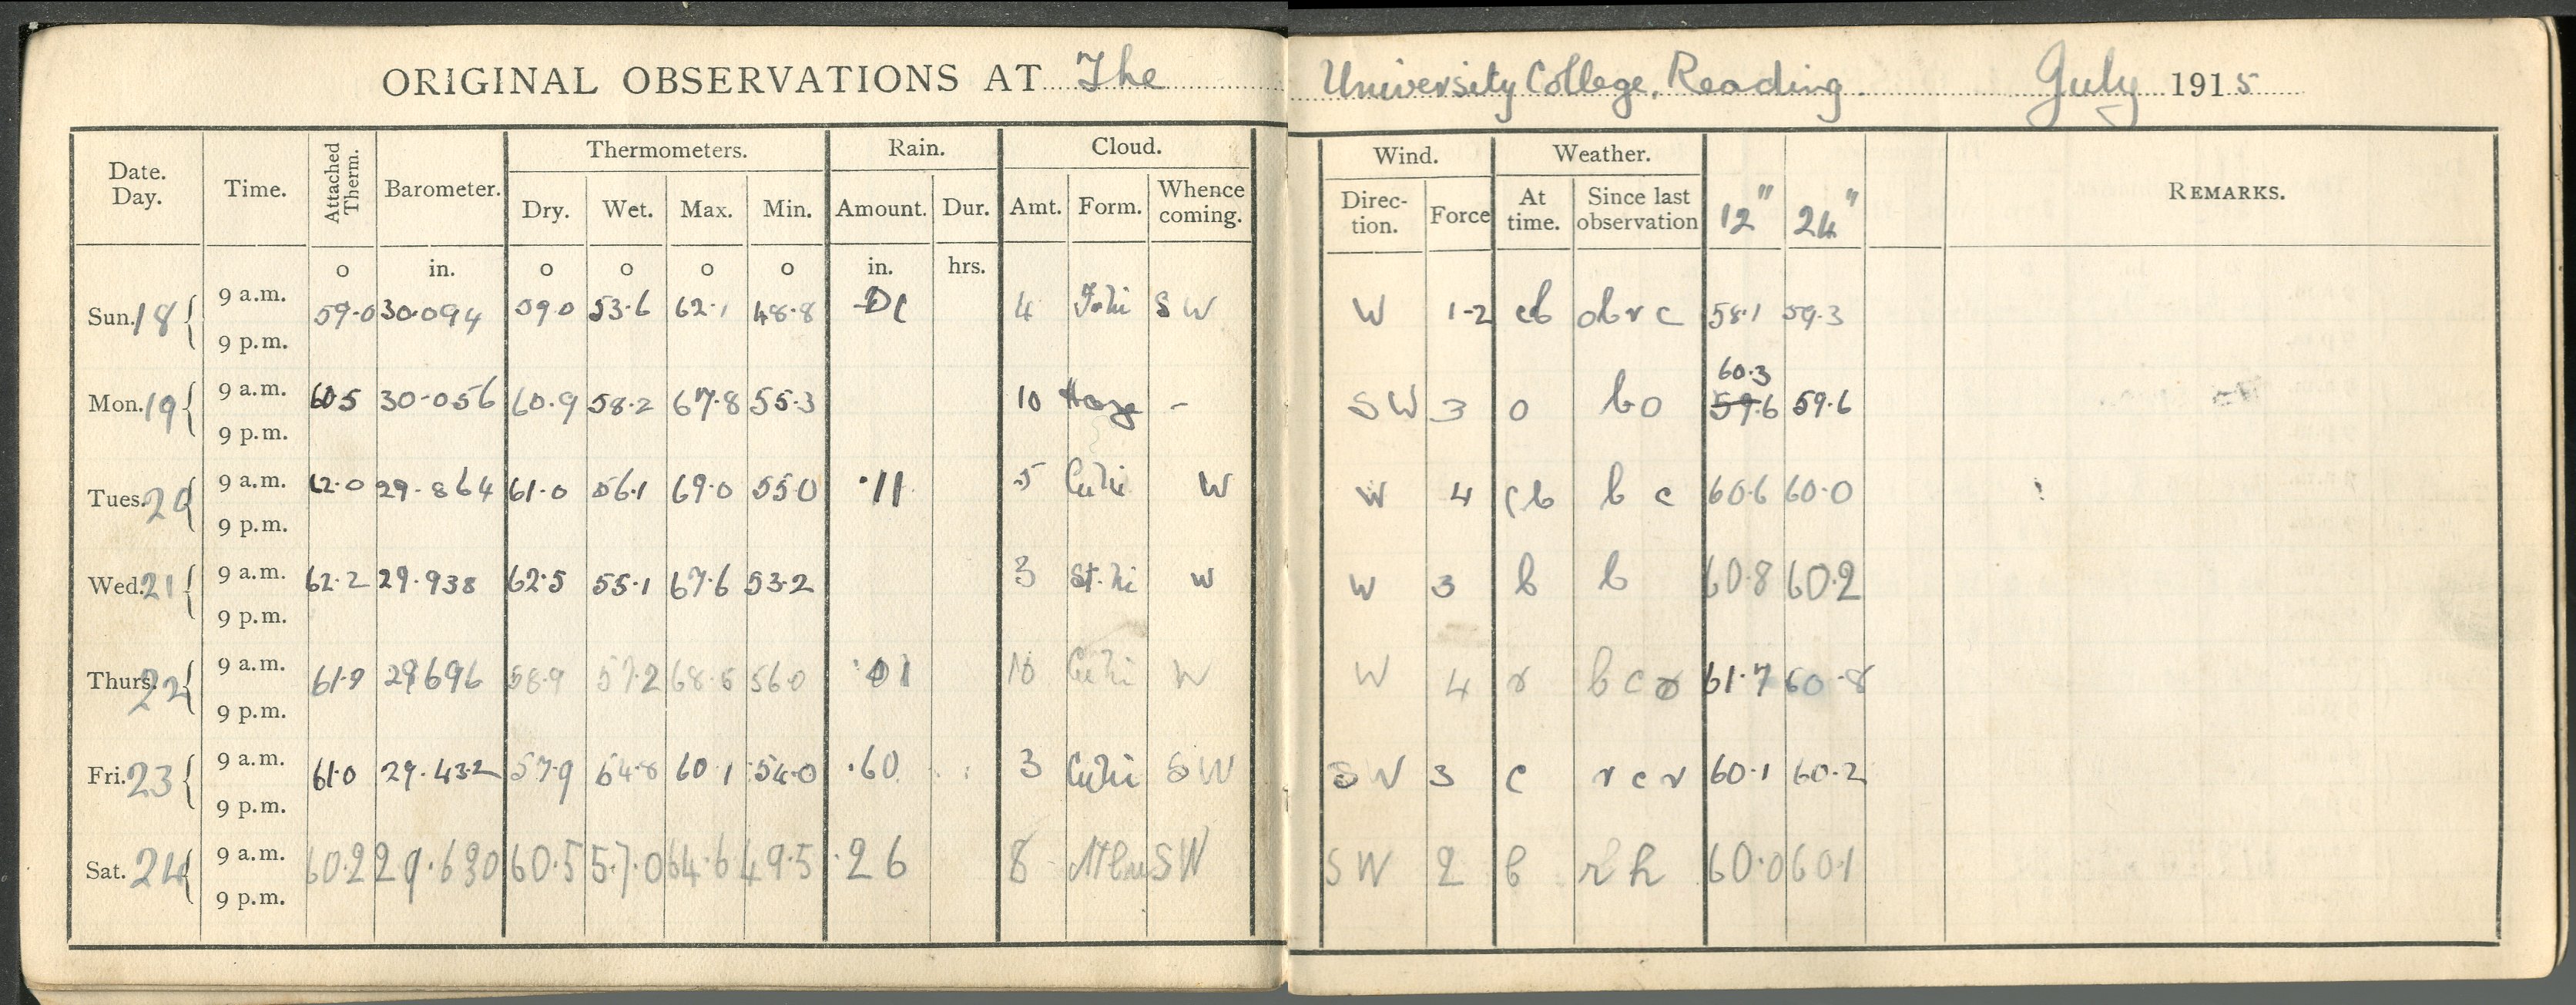 ORIGINAL OBSERVATIONS AT The University College, Reading. July 1915
Date. Day. Time. Attached Therm. Barometer. Thermometers. Rain. Cloud. Wind. Weather. 12" 24" REMARKS.
Dry. Wet. Max. Min. Amount. Dur. Amt. Form. Whence coming. Direction. Force At time. Since last observation
o in. o o o o in. hrs.
Sun. 18 9 a.m. 59.0 30.094 59.0 53.6 62.1 48.8 4 SW W 1-2 cb obrc 58.1 59.3
9 p.m.
Mon. 19 9 a.m. 60.5 30.056 60.9 58.2 67.8 55.3 10 Haze - SW 3 o bo 60.3 59.6 59.6
9 p.m.
Tues. 20 9 a.m. 62.0 29.864 61.0 56.1 69.0 55.0 .11 5 Cu Ni W W 4 cb b c 60.6 60.0
9 p.m.
Wed. 21 9 a.m. 62.2 29.938 62.5 55.1 67.6 53.2 3 St. Ni W W 3 b b 60.8 60.2
9 p.m.
Thurs. 22 9 a.m. 61.9 29696 58.9 57.2 68.5 56.0 .01 10 Cu Ni W W 4 r b c r 61.7 60.8
9 p.m.
Fri. 23 9 a.m. 61.0 29.432 57.9 54.8 60.1 54.0 .60 3 Cu Ni SW SW 3 c r c r 60.1 60.2
9 p.m.
Sat. 24 9 a.m. 60.2 29.630 60.5 57.0 64.6 49.5 .26 8 SW SW 2 b 60.0 60.1
9 p.m.